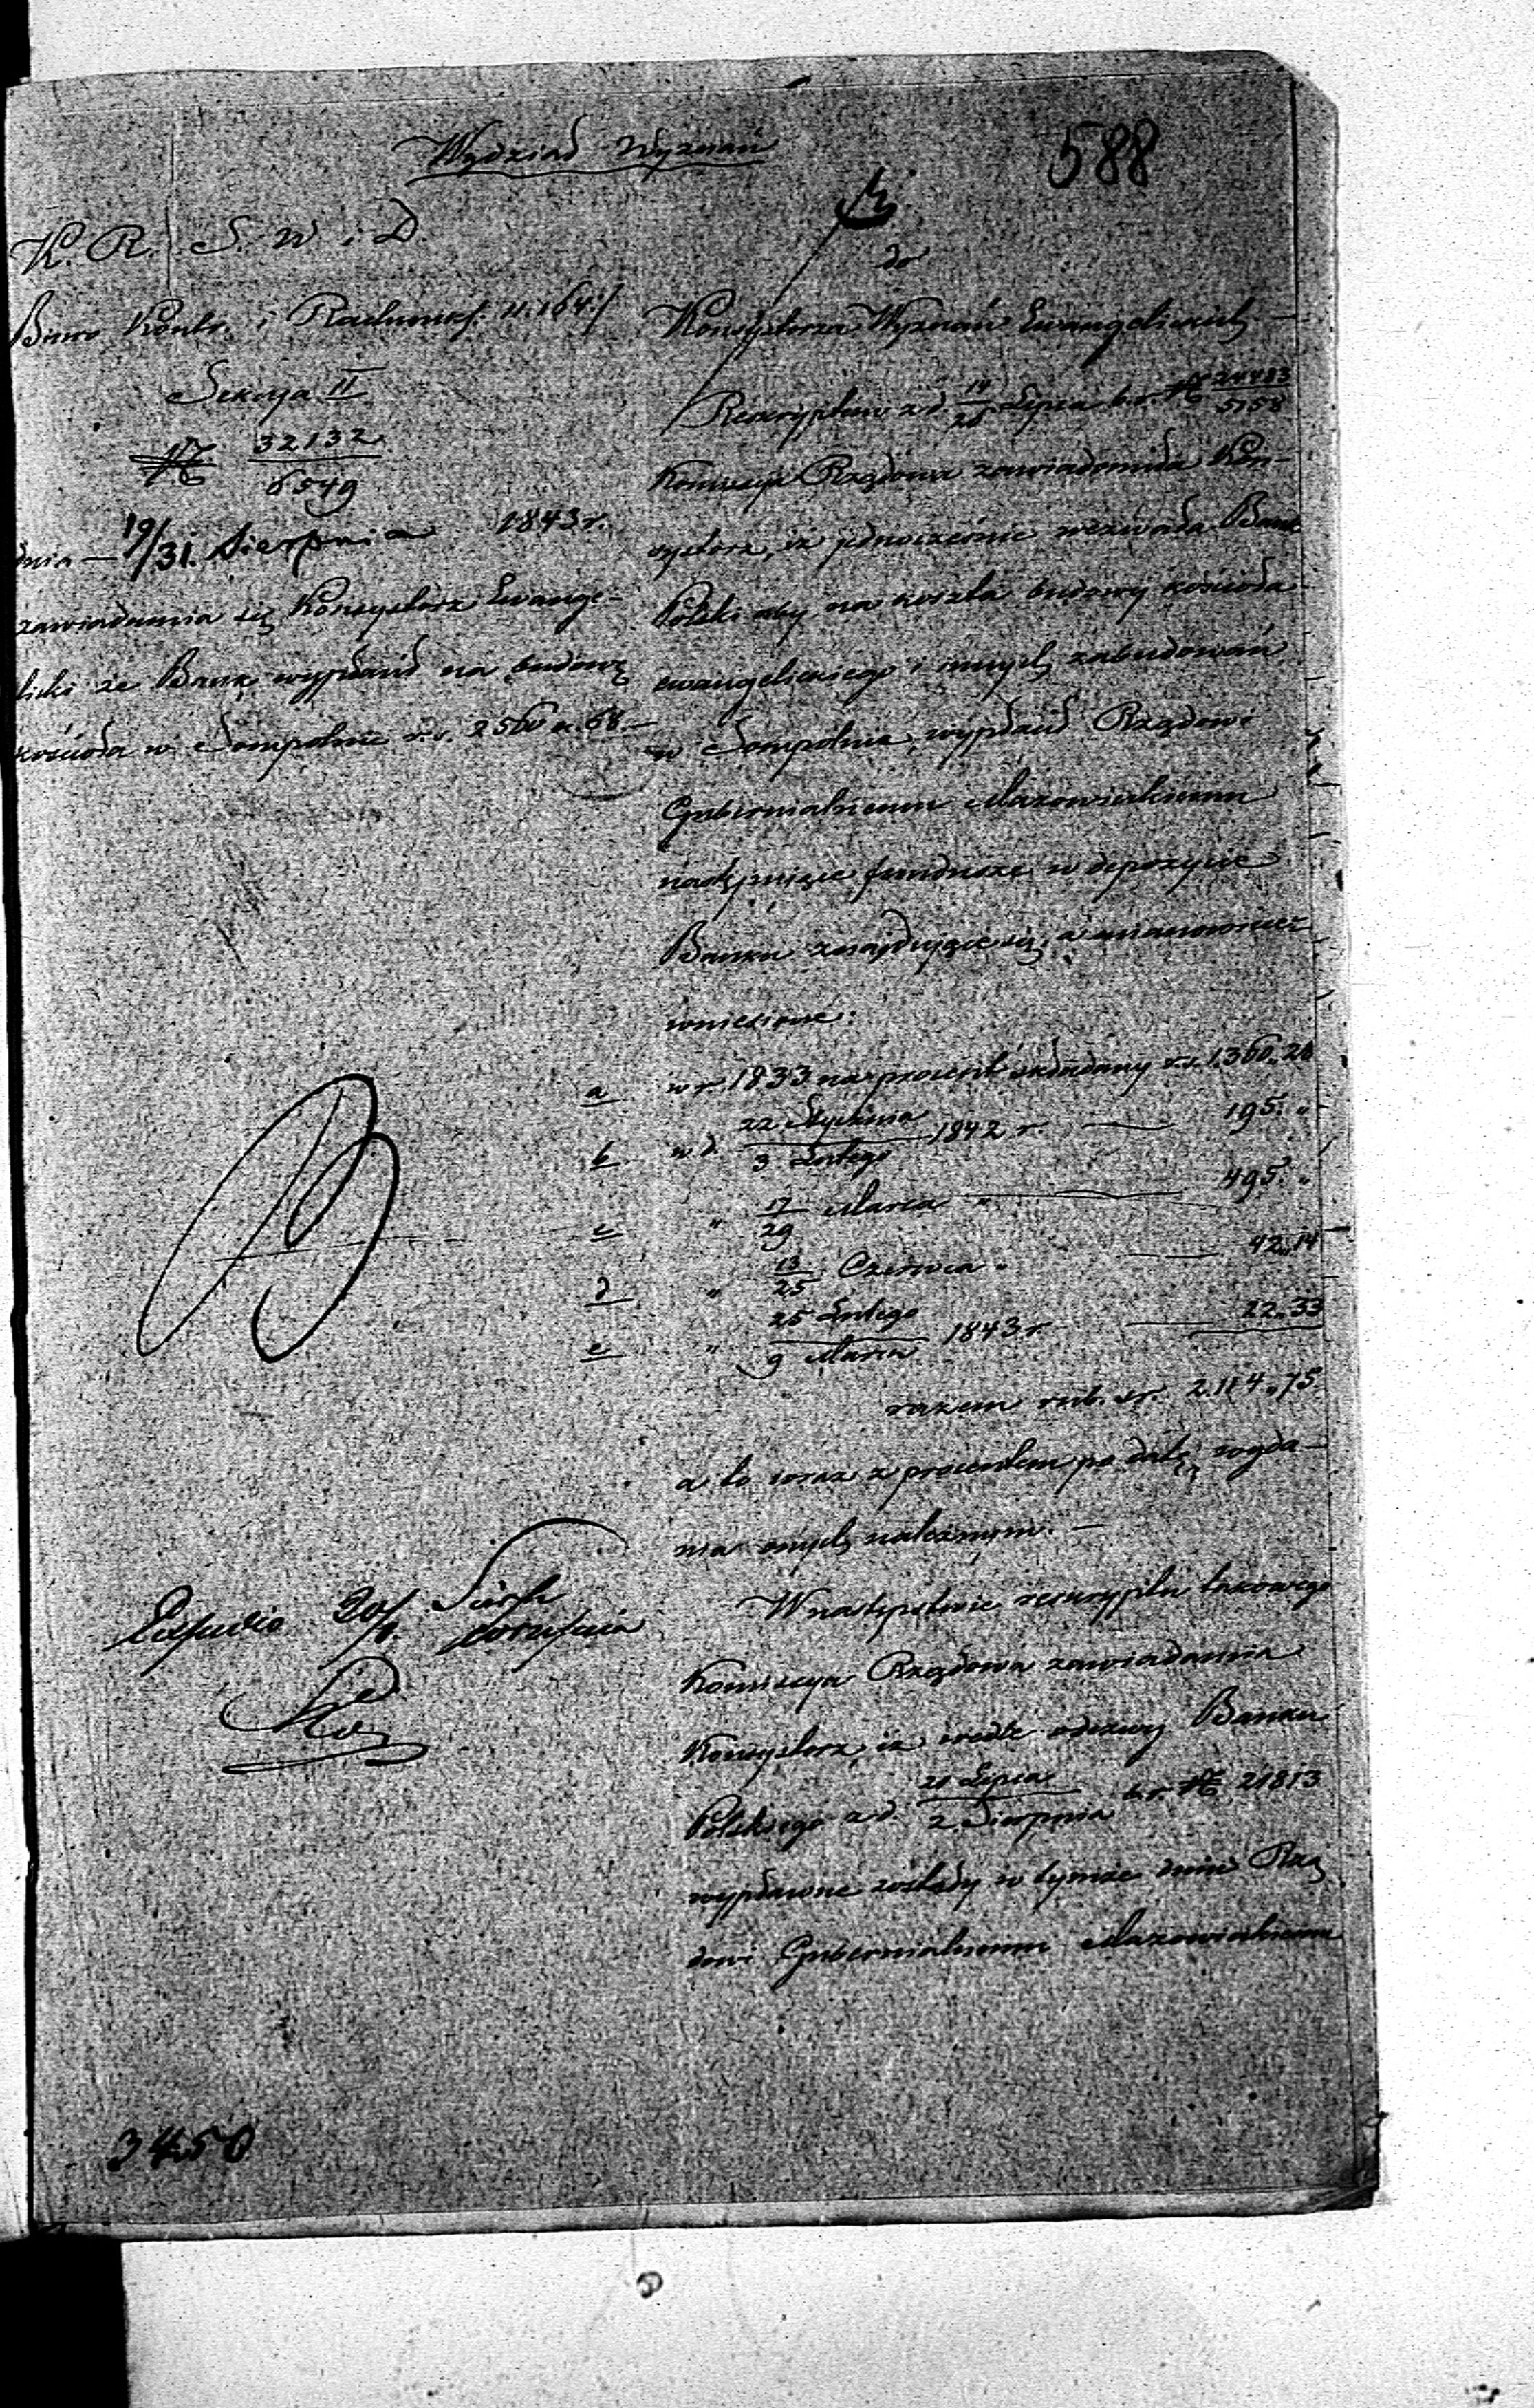 Wydział Wyznań
588
K. R. S. W i D.
Biuro Kontr. i Rachunk.
Sekcya II
№ 32132/6549
dnia — 19/31. Sierpnia 1843 r.
zawiadamia się Konsystorz Ewange-
licki że Bank wypłacił na budowę
kościoła w Sompolnie r.s. 2560 k. 68.—
do
Konsystorza Wyznań Ewangelickich —
Reskryptem z d. 14/26 Lipca b.r. № 24483/5158
Kommissya Rządowa zawiadomiła Kon-
systorz, iż jednocześnie wezwała Bank
Polski aby na koszta budowy kościoła
ewangelickiego i innych zabudowań
w Sompolnie, wypłacił Rządowi
Gubernialnemu Mazowieckiemu
następujące fundusze w depozycie
Banku znajdujące się, a mianowicie
wniesione:
a w r. 1833 na procent składany r.s. 1.360„28
b w d. 22 Stycznia/3 Lutego 1842 r. — 195. „
c „ 17/29 Marca „ — 495. „
d „ 13/25 Czerwca „ — 42„14
e „ 25 Lutego/9 Marca 1843 r. — 22„33
razem rub. sr. 2.114„75.
a to wraz z procentem po datę wyda-
nia onych należnym. —
W następstwie reskryptu takowego
Kommissya Rządowa zawiadamia
Konsystorz, iż wedle odezwy Banku
Polskiego z d. 21 Lipca/2 Sierpnia b.r. № 21813
wypłacone zostały w tymże dniu Rzą
dowi Gubernialnemu Mazowieckiemu
3450